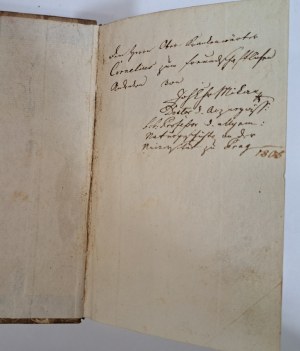 Dem Herrn Ober
Cornelius zum freundschaftlichen
Andenken von
Joh. Chr. Mikan
Doctor d. Arzneywiss.
Professor d. allgem:
Naturgeschichte an der
Universität zu Prag
1808